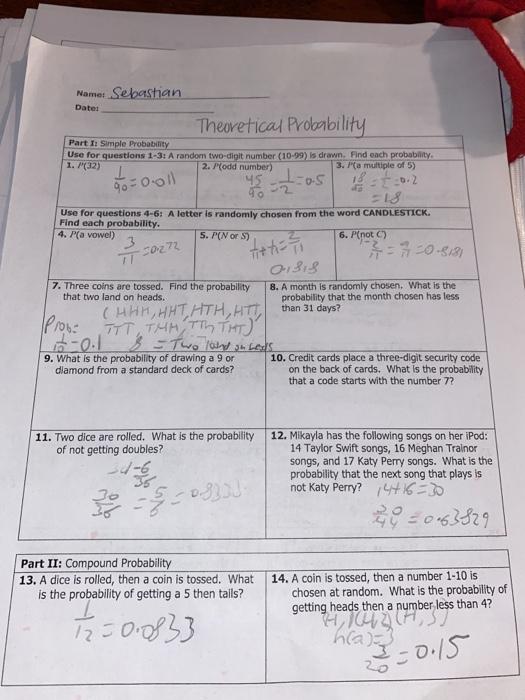 Name: Sebastian
Date:
Theoretical Probability
Part I: Simple Probability
Use for questions 1-3: A random two-digit number (10-99) is drawn. Find each probability.
1. P(32)
1/90 = 0.011
2. P(odd number)
45/90 = 1/2 = 0.5
3. P(a multiple of 5)
= 0.2
= 18
Use for questions 4-6: A letter is randomly chosen from the word CANDLESTICK.
Find each probability.
4. P(a vowel)
3/11 = 0.272
5. P(N or S)
1/11 + 1/11 = 2/11
0.1818
6. P(not C)
= 9/11 = 0.8181
7. Three coins are tossed. Find the probability
that two land on heads.
(HHH, HHT, HTH, HTT,
TTT, THH, TTH, THT)
Prob:
= 0.1
8 = Two land on heads
8. A month is randomly chosen. What is the
probability that the month chosen has less
than 31 days?
9. What is the probability of drawing a 9 or
diamond from a standard deck of cards?
10. Credit cards place a three-digit security code
on the back of cards. What is the probability
that a code starts with the number 7?
11. Two dice are rolled. What is the probability
of not getting doubles?
6/36
30/36 = 5/6 = 0.8333
12. Mikayla has the following songs on her iPod:
14 Taylor Swift songs, 16 Meghan Trainor
songs, and 17 Katy Perry songs. What is the
probability that the next song that plays is
not Katy Perry?
14+16=30
= 0.63829
Part II: Compound Probability
13. A dice is rolled, then a coin is tossed. What
is the probability of getting a 5 then tails?
1/12 = 0.0833
14. A coin is tossed, then a number 1-10 is
chosen at random. What is the probability of
getting heads then a number less than 4?
n(a)=3
3/20 = 0.15